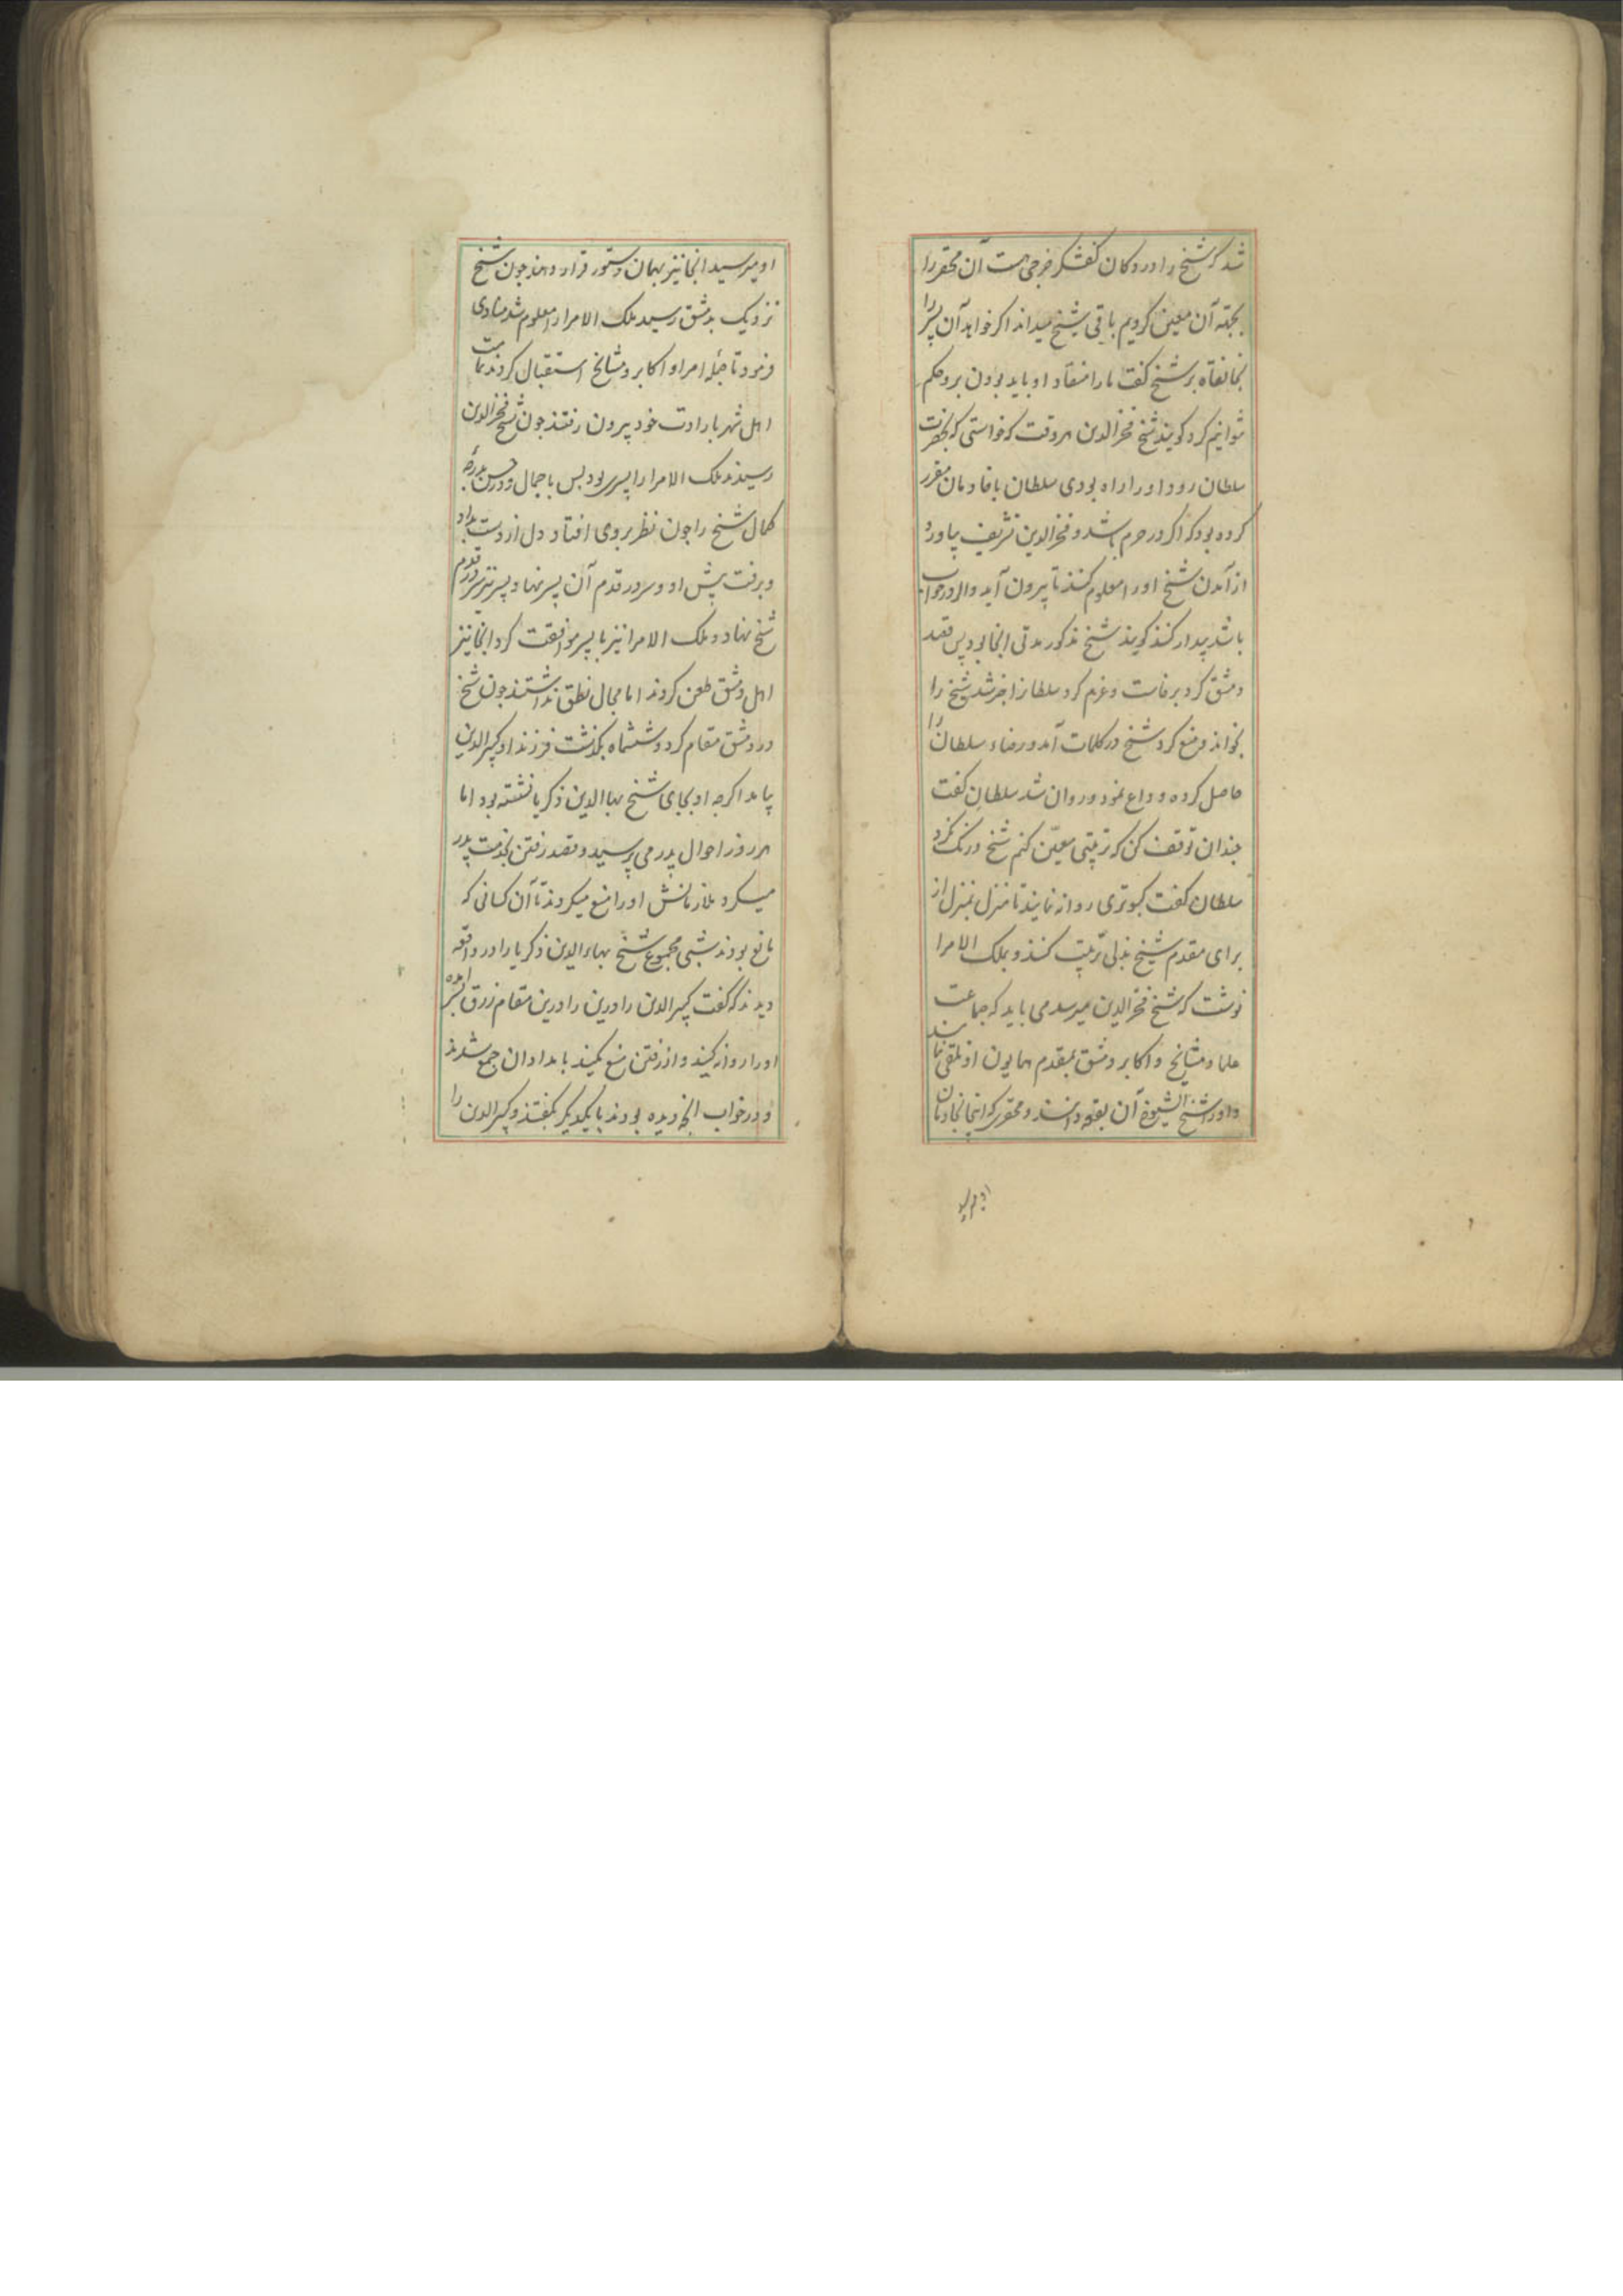 شد که شیخ را در دکان کفشگر خرجی هست آن محقر را
بجهته آن معین کردیم باقی شیخ میداند اگر خواهد آن پسر را
بخانقاه برد شیخ گفت ما را منقاد او باید بودن برو حکم
نتوانیم کرد گویند شیخ فخرالدین هر وقت که خواستی که بحضرت
سلطان رود او را راه بودی سلطان با خادمان مقرر
کرده بود که اگر در حرم باشد و فخرالدین تشریف بیاورد
از آمدن شیخ او را معلوم کنند تا بیرون آید و اگر در خواب
باشد بیدار کنند گویند شیخ مذکور مدتی آنجا بود پس قصد
دمشق کرد برخاست و عزم کرد سلطانرا خبر شد شیخ را
بخواند و منع کرد شیخ در کلمات آمد و رضاء سلطان را
حاصل کرده و وداع نمود و روان شد سلطان گفت
چندان توقف کن که ترتیبی معین کنم شیخ درنگ نکرد
سلطان گفت کبوتری روانه نمایند تا منزل بمنزل از
برای مقدم شیخ نزلی ترتیب کنند و بملک الامرا
نوشت که شیخ فخرالدین میرسد می باید که جماعت
علما و مشایخ و اکابر دمشق بمقدم همایون او تلقی نمایند
و او را شیخ الشیوخ آن بقعه دانسند و محقری که اینجا بخادمان
او میرسید
او میرسید آنجا نیز بهمان دستور قرار دهند چون شیخ
نزدیک بدمشق رسید ملک الامرا را معلوم شد منادی
فرمود تا جمله امرا و اکابر و مشایخ استقبال کردند تمامت
اهل شهر بارادت خود بیرون رفتند چون شیخ فخرالدین
رسیدند ملک الامرا را پسری بود بس با جمال و در حسن بدرجه
کمال شیخ را چون نظر بروی افتاد دل از دست بداد
و برفت پیش او و سر در قدم آن پسر نهاد و پسر نیز سر در قدم
شیخ نهاد و ملک الامرا نیز با پسر موافقت کرد آنجا نیز
اهل دمشق طعن کردند اما مجال نطق نداشتند چون شیخ
در دمشق مقام کرد و ششماه بگذشت فرزند او کبیرالدین
بیامد اگرچه او بجای شیخ بهاالدین ذکریا نشسته بود اما
هر روز احوال پدر می پرسید و قصد رفتن بخدمت پدر
میکرد ملازمانش او را منع میکردند تا آن کسانی که
مانع بودند شبی مجموع شیخ بهاءالدین ذکریا را در واقعه
دیدند که گفت کبیرالدین را درین را درین مقام رزق بسر آمده
او را روانه کنید و از رفتن منع مکنید بامدادان جمع شدند
و در خواب آنچه دیده بودند با یکدیگر بگفتند و کبیرالدین را